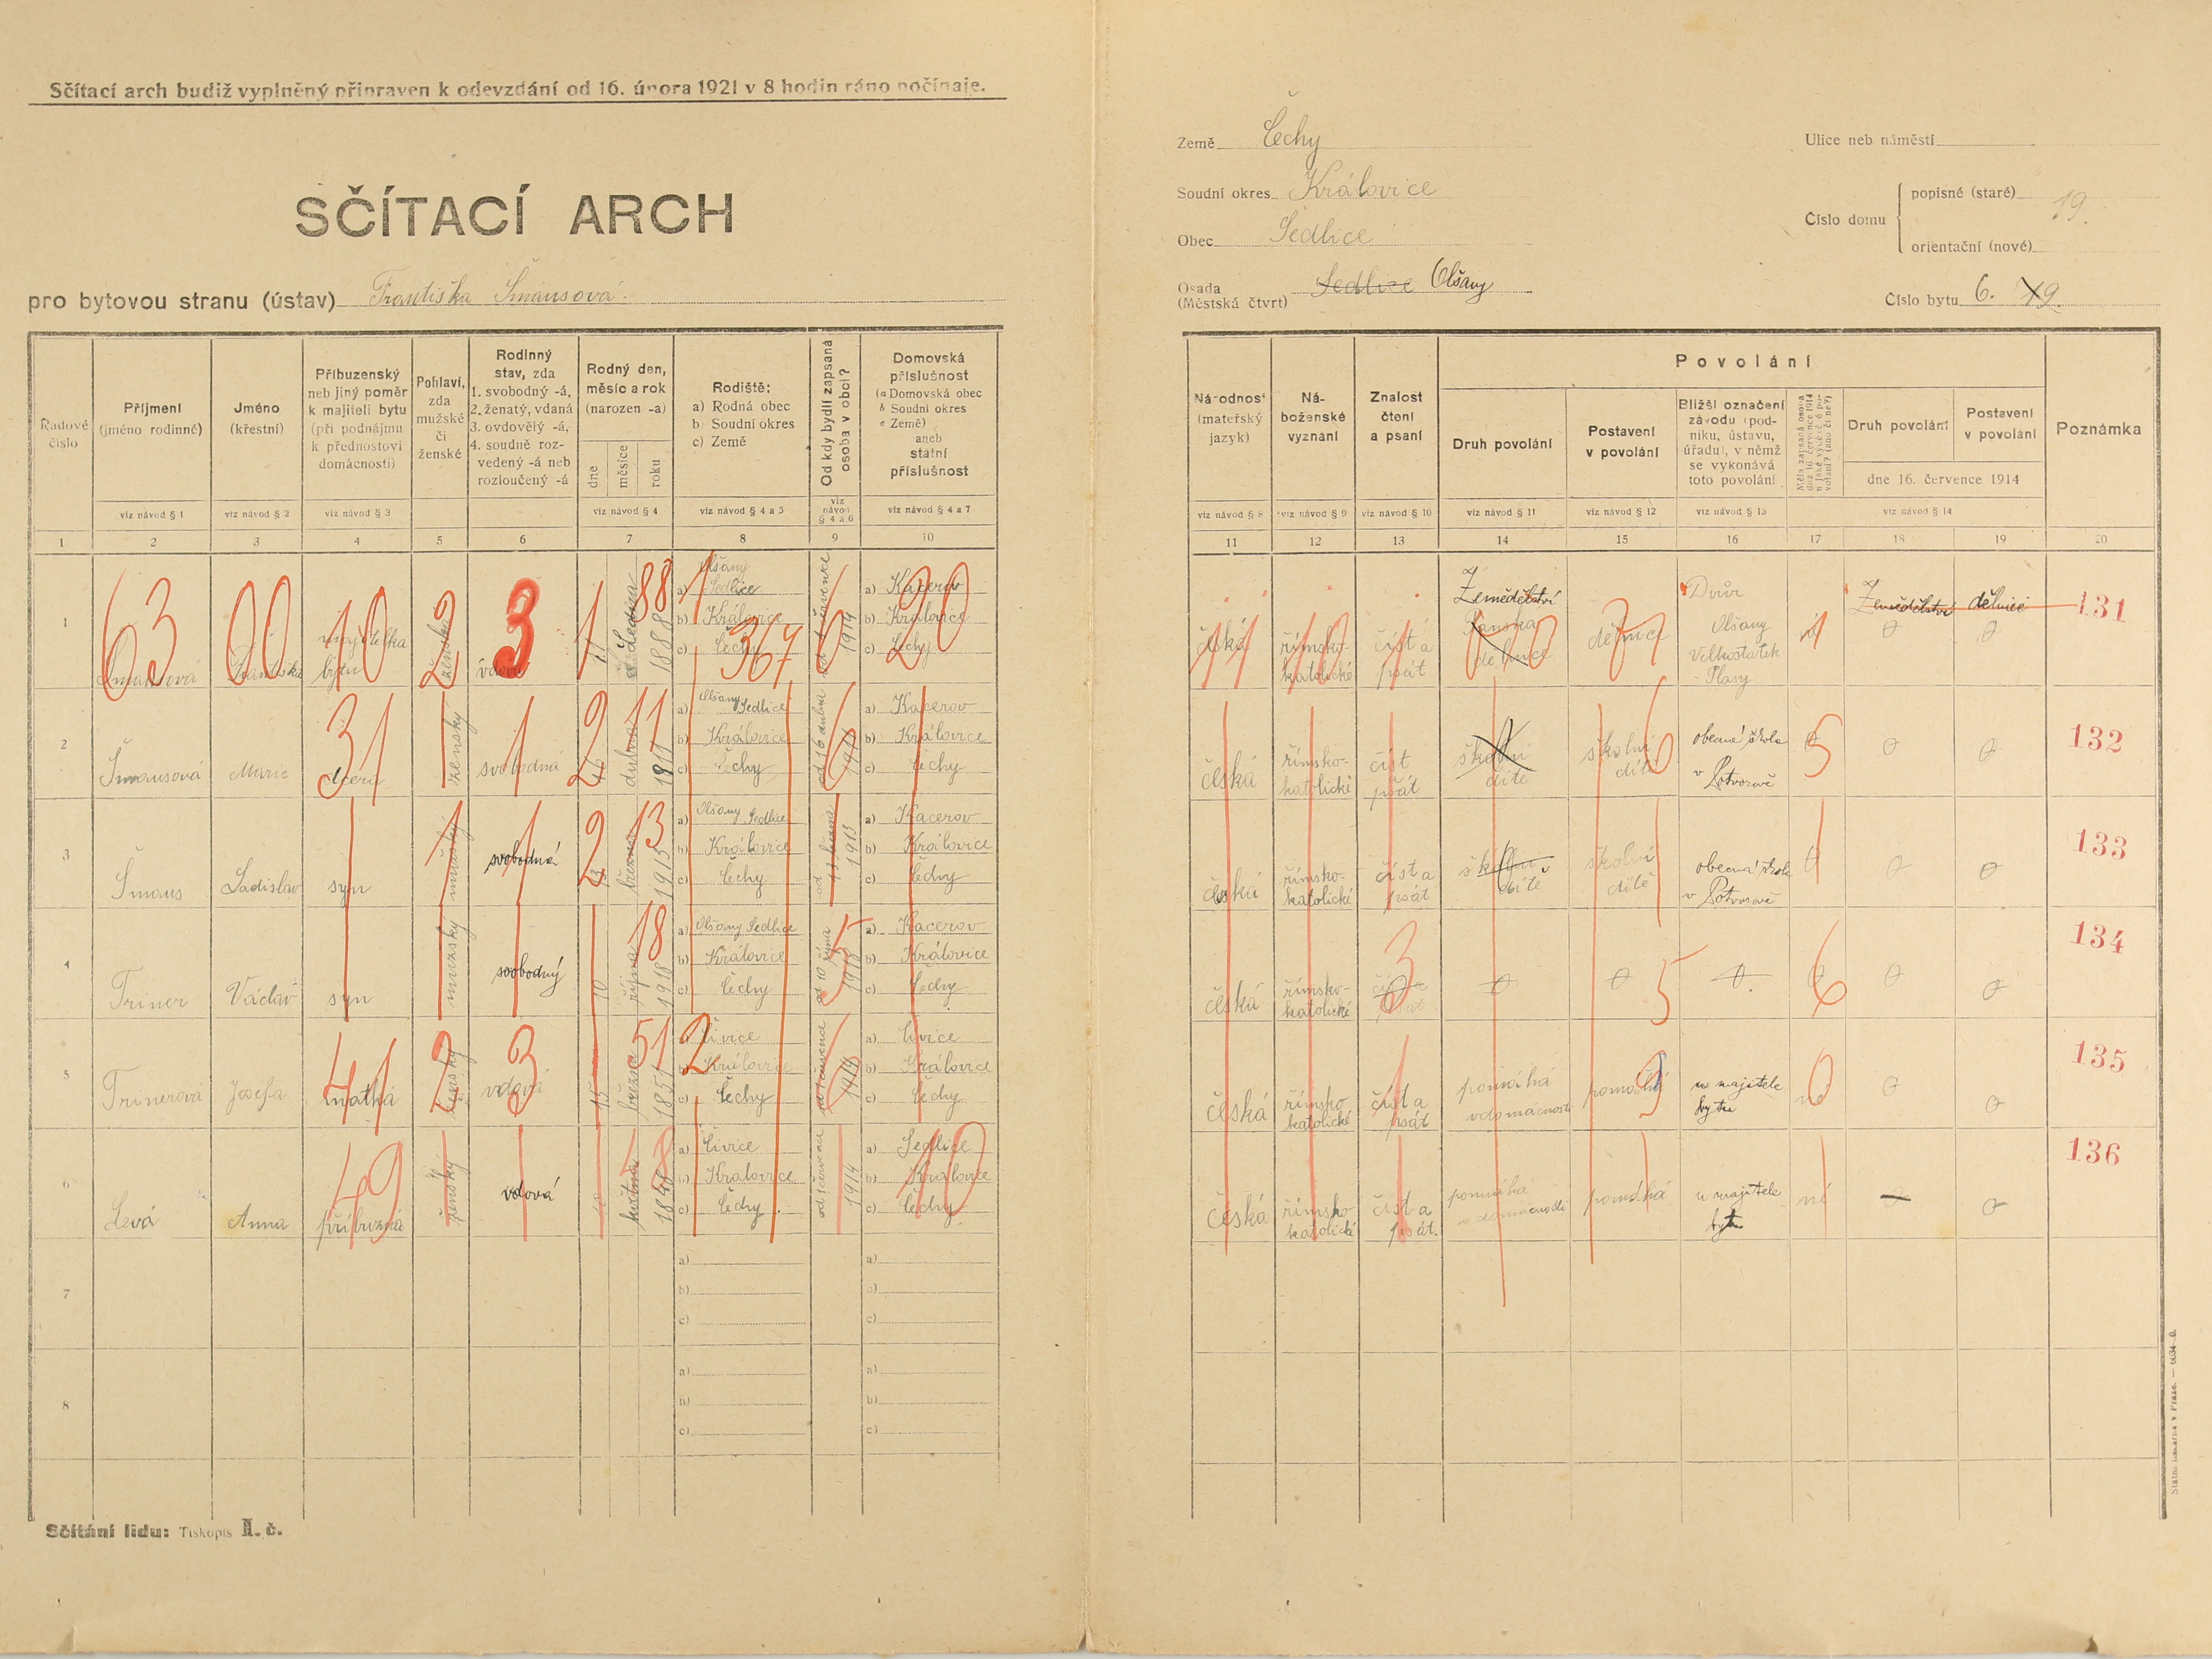 Sčítací arch budiž vyplněný připraven k odevzdání od 16. února 1921 v 8 hodin ráno počínaje.
SČÍTACÍ ARCH
pro bytovou stranu (ústav) Františka Šmausová.
Země Čechy
Soudní okres Královice
Obec Sedlice
Osada (Městská čtvrť) Sedlice Olšany
Ulice neb náměstí
Číslo domu
popisné (staré) 19.
orientační (nové)
Číslo bytu 6. 19.
Řadové číslo
Příjmení (jméno rodinné)
Jméno (křestní)
Příbuzenský neb jiný poměr k majiteli bytu (při podnájmu k přednostovi domácnosti)
Pohlaví, zda mužské či ženské
Rodinný stav, zda 1. svobodný -á, 2. ženatý, vdaná 3. ovdovělý -á, 4. soudně rozvedený -á neb rozloučený -á
Rodný den, měsíc a rok (narozen -a)
dne měsíce roku
Rodiště: a) Rodná obec b) Soudní okres c) Země
Od kdy bydlí zapsaná osoba v obci?
Domovská příslušnost (a Domovská obec b Soudní okres c Země) aneb státní příslušnost
viz návod § 1 viz návod § 2 viz návod § 3 viz návod § 4 viz návod § 4 a 5 viz návod § 4 a 6 viz návod § 4 a 7
1 2 3 4 5 6 7 8 9 10
Národnost (mateřský jazyk)
Náboženské vyznání
Znalost čtení a psaní
Povolání
Druh povolání
Postavení v povolání
Bližší označení závodu (podniku, ústavu, úřadu), v němž se vykonává toto povolání
Druh povolání
Postavení v povolání
dne 16. července 1914
Poznámka
viz návod § 8 viz návod § 9 viz návod § 10 viz návod § 11 viz návod § 12 viz návod § 13 viz návod § 14
11 12 13 14 15 16 17 18 19 20
1 Šmausová Františka majitelka bytu ženské vdova 11 Ledna 1888
63 00 10 2 3 1 88 1 367 6 20
Olšany Sedlice
a) Kacerov
b) Královice b) Královice
c) Čechy c) Čechy
1914
česká římsko-katolické číst a psát Zemědělství dělnice
Dvůr Olšany Velkostatek Plasy
Zemědělství dělnice
131
2 Šmausová Marie dcera ženský svobodná 26 dubna 1911
31 1 1 2 11 6
a) Olšany Sedlice a) Kacerov
b) Královice b) Královice
c) Čechy c) Čechy
česká římsko-katolické číst psát školní dítě školní dítě
obecná škola v Potvorově
132
3 Šmaus Ladislav syn mužský svobodná března 1913
1 1 2 13
a) Olšany Sedlice a) Kacerov
b) Královice b) Královice
c) Čechy c) Čechy
1913
česká římsko-katolické číst a psát školní dítě školní dítě
obecná škola v Potvorově
133
4 Triner Václav syn mužský svobodný 10 října 1918
18 5
a) Olšany Sedlice a) Kacerov
b) Královice b) Královice
c) Čechy c) Čechy
od 10 října 1918
česká římsko-katolické
3 5 6
134
5 Trinerová Josefa matka ženský vdova 15 března 1851
41 2 3 51 2 6
a) Čivice a) Čivice
b) Královice b) Královice
c) Čechy c) Čechy
1914
česká římsko katolické číst a psát pomáhá v domácnosti pomáhá
u majitele bytu
135
6 Levá Anna příbuzná ženský vdová
49 10
a) Čivice a) Sedlice
b) Kralovice b) Královice
c) Čechy c) Čechy
od 1 července 1914
česká římsko katolické číst a psát. pomáhá v domácnosti pomáhá
u majitele bytu
136
7 a) b) c)
8 a) b) c)
Sčítání lidu: Tiskopis I. č.